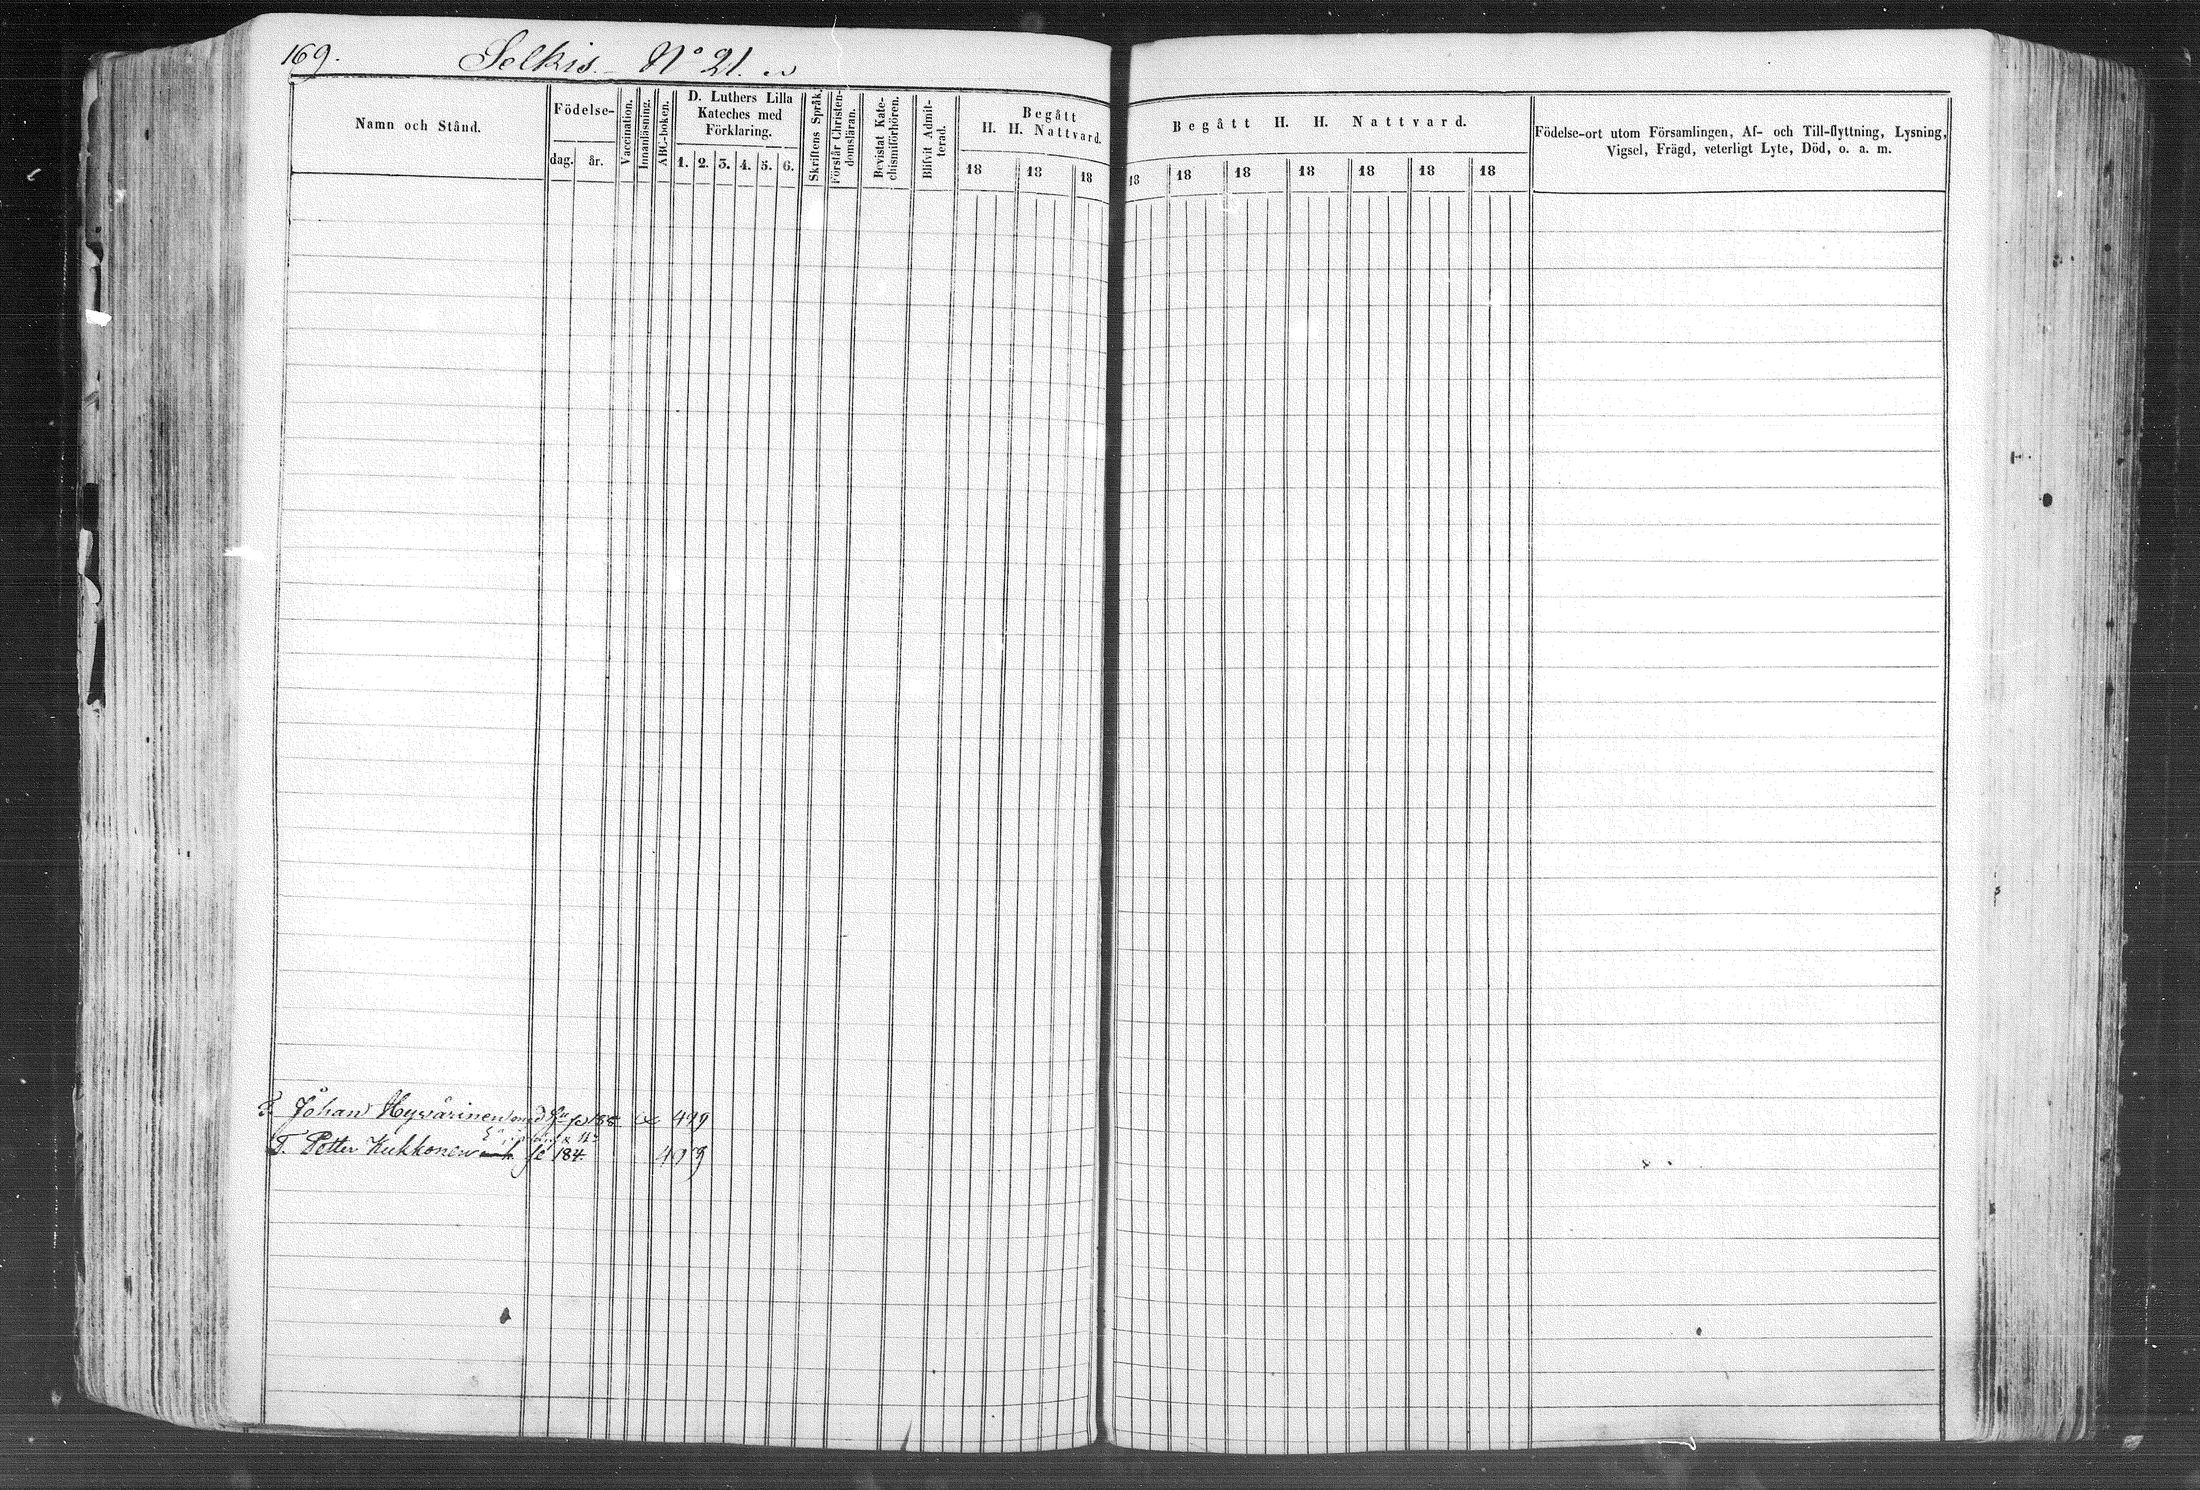 169. Selkis. N° 21.
Namn och Stånd.
Födelse-
dag. år.
Vaccination.
Innanläsning.
ABC-boken.
D. Luthers Lilla
Kateches med
Förklaring.
1. 2. 3. 4. 5. 6.
Skriftens Språk.
Förstår Christen-
domsläran.
Bevistat Kate-
chismiförhören.
Blifvit Admit-
terad.
Begått
H. H. Nattvard.
18 18 18
Begått H. H. Nattvard.
18 18 18 18 18 18 18
Födelse-ort utom Församlingen, Af- och Till-flyttning, Lysning,
Vigsel, Frägd, veterligt Lyte, Död, o. a. m.
Johan Hyvärinen med
T. Petter Kukkonen 184.